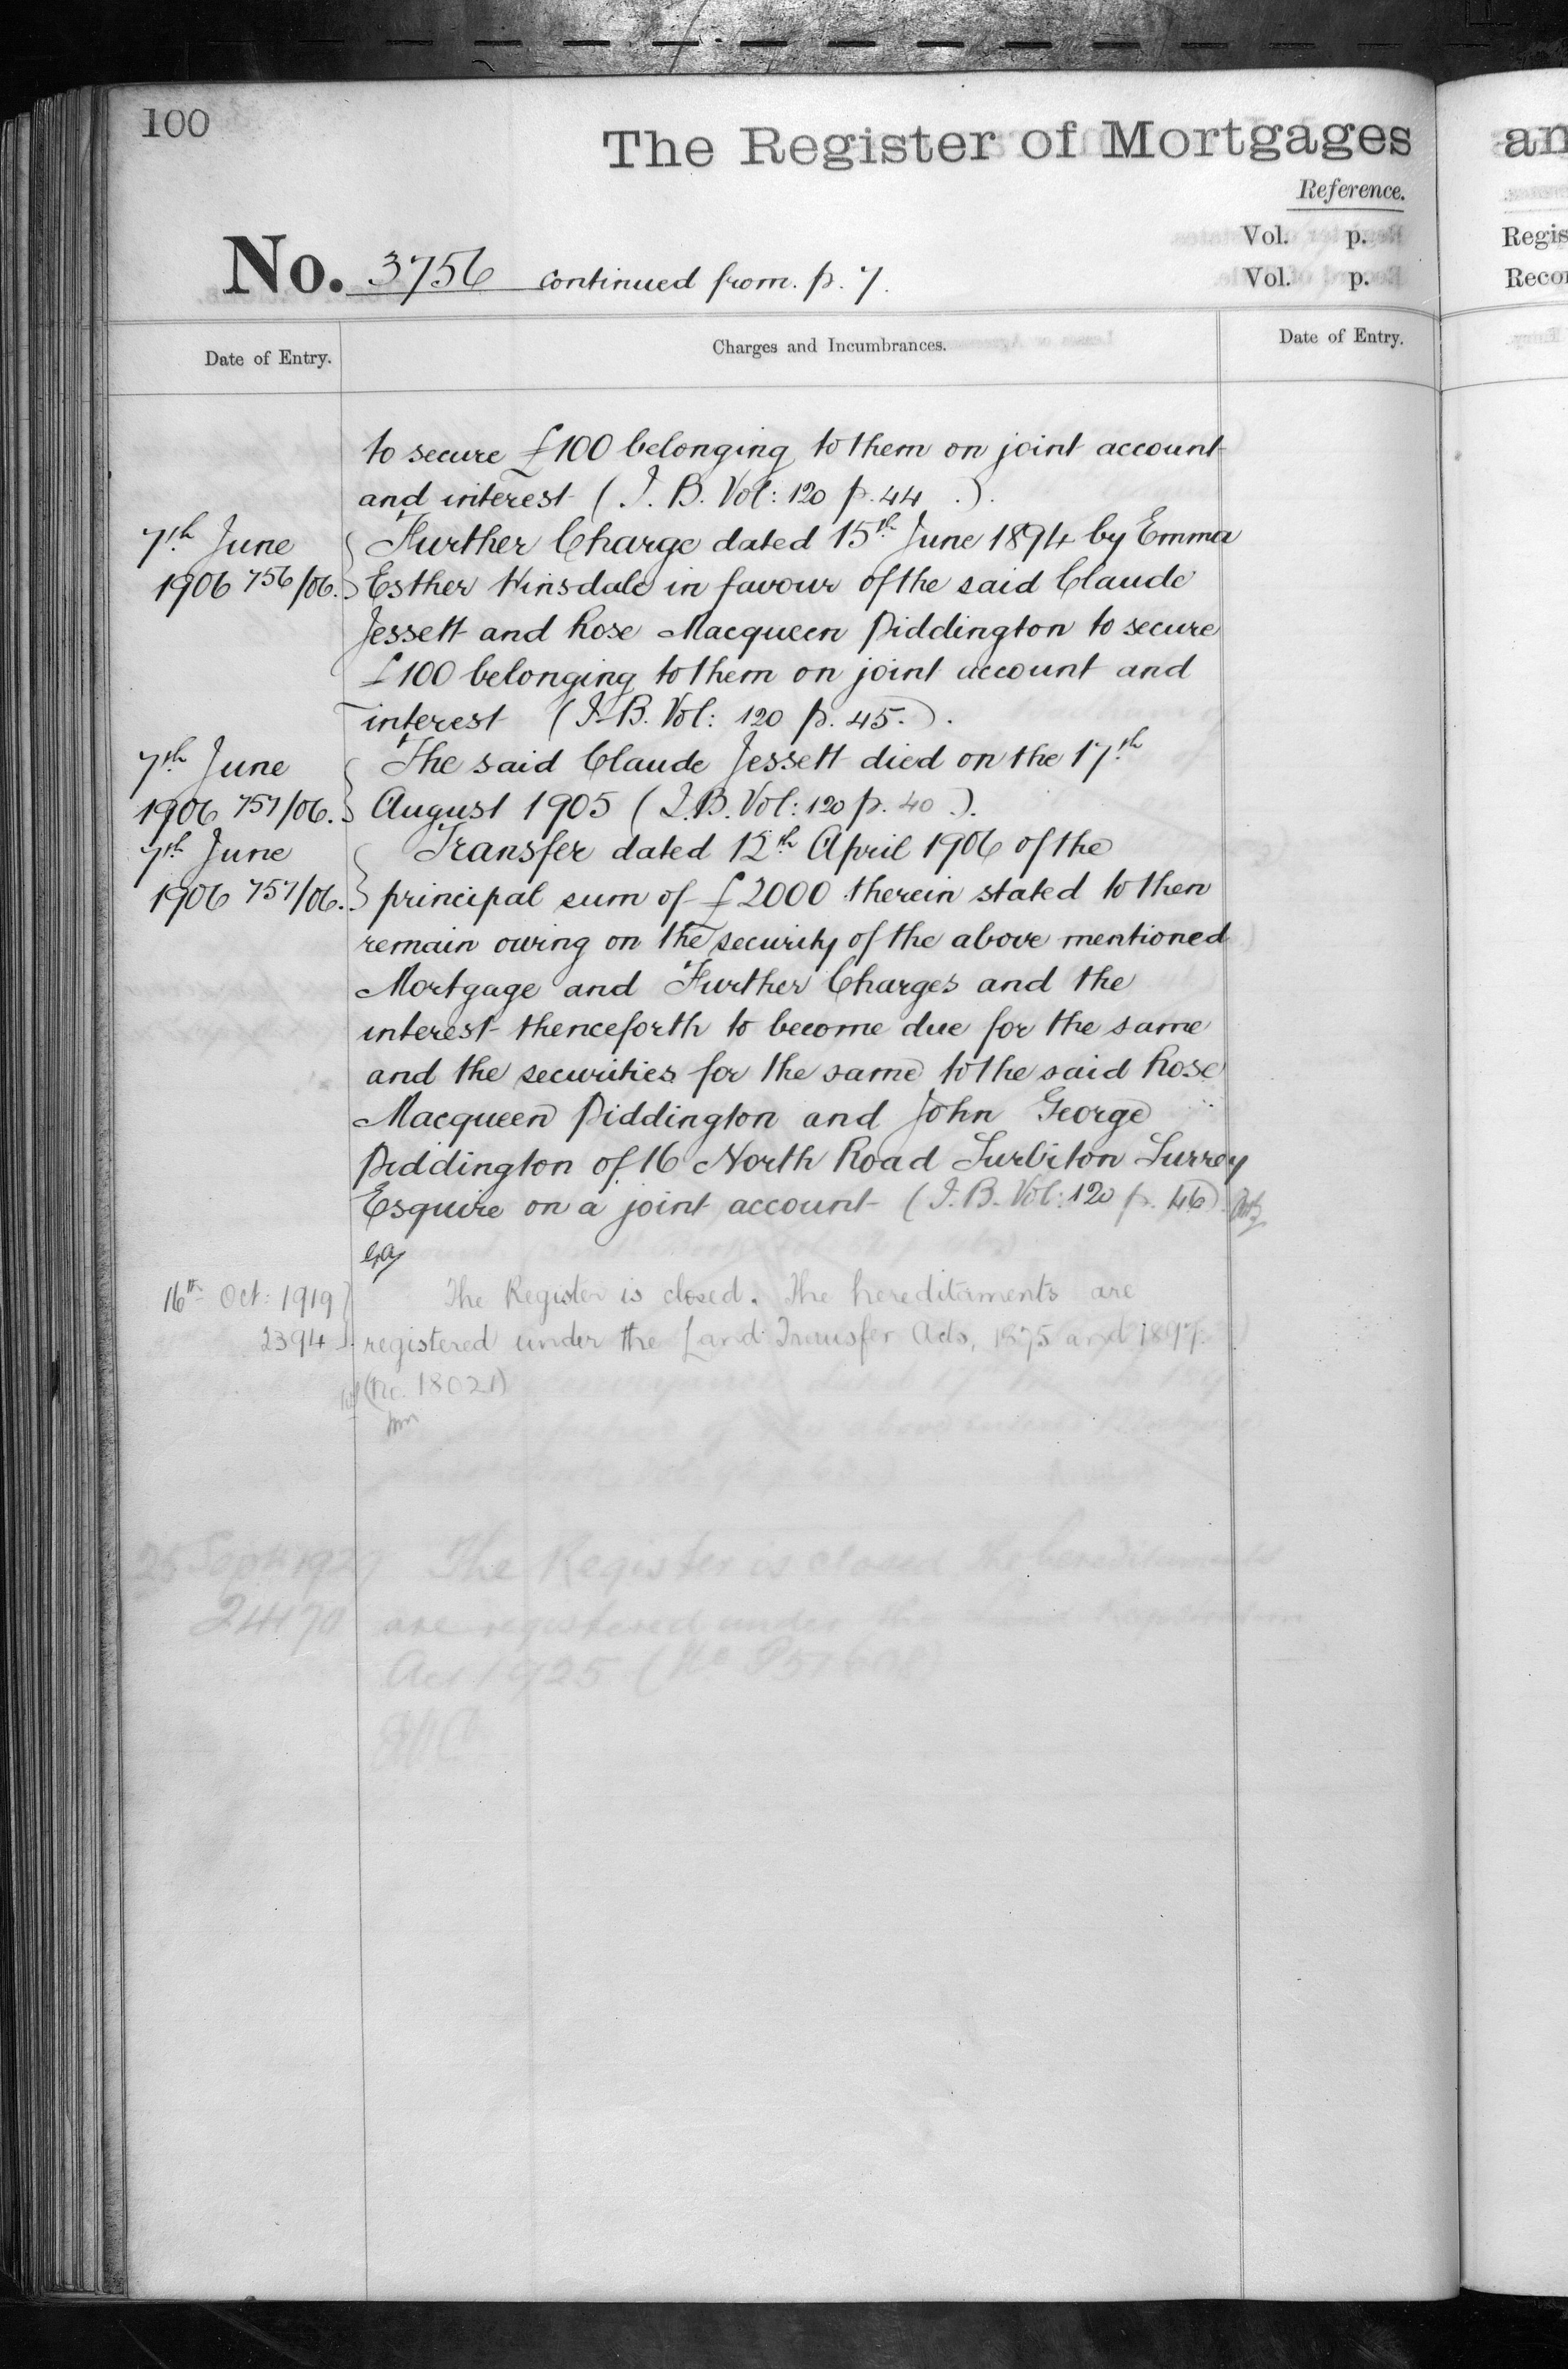 100
The Register of Mortgages
an
Reference.
Vol. p.
Regis
No. 3756 continued from. p. 7.
Vol. p.
Recor
Date of Entry.
Charges and Incumbrances.
Date of Entry.
to secure £100 belonging to them on joint account
and interest (I. B. Vol: 120 p. 44 .).
7th June
Further Charge dated 15th June 1894 by Emma
1906 756/06.
Esther Hinsdale in favour of the said Claude
Jessett and Rose Macqueen Piddington to secure
£100 belonging to them on joint account and
interest (I. B. Vol: 120 p. 45.).
7th June
The said Claude Jessett died on the 17th
1906 757/06.
August 1905 (I. B. Vol: 120 p. 40 .).
7th June
Transfer dated 12th April 1906 of the
1906 757/06.
principal sum of £2000 therein stated to then
remain owing on the security of the above mentioned
Mortgage and Further Charges and the
interest thenceforth to become due for the same
and the securities for the same to the said Rose
Macqueen Piddington and John George
Piddington of 16 North Road Surbiton Surrey
Esquire on a joint account (I. B. Vol: 120 p. 46).
16th Oct: 1919
The Register is closed. The hereditaments are
2394
registered under the Land Transfer Acts, 1875 and 1897.
(No. 18021)
25 Sept 1927
The Register is closed the hereditaments
24170
are registered under the Land Registration
Act 1925 (No